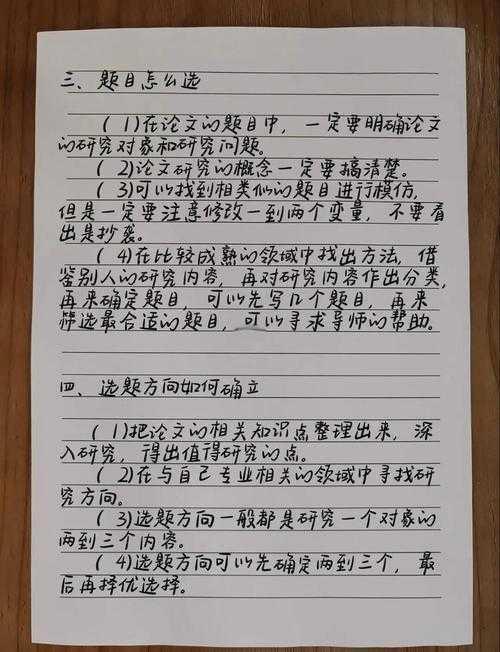 三、题目怎么选
(1)在论文的题目中，一定要明确论文
的研究对象和研究问题。
(2)论文研究的概念一定要搞清楚。
(3)可以找到相类似的题目进行模仿，
但是一定要注意修改一到两个变量，不要看
出是抄袭。
(4)在比较成熟的领域中找出方法，借
鉴别人的研究内容，再对研究内容作出分类，
再来确定题目，可以先写几个题目，再来
筛选最合适的题目，可以寻求导师的帮助。
四、选题方向如何确立
(1)把论文的相关知识点整理出来，深
入研究，得出值得研究的点。
(2)在与自己专业相关的领域中寻找研
究方向。
(3)选题方向一般都是研究一个对象的
两到三个内容。
(4)选题方向可以先确定两到三个，最
后再择优选择。